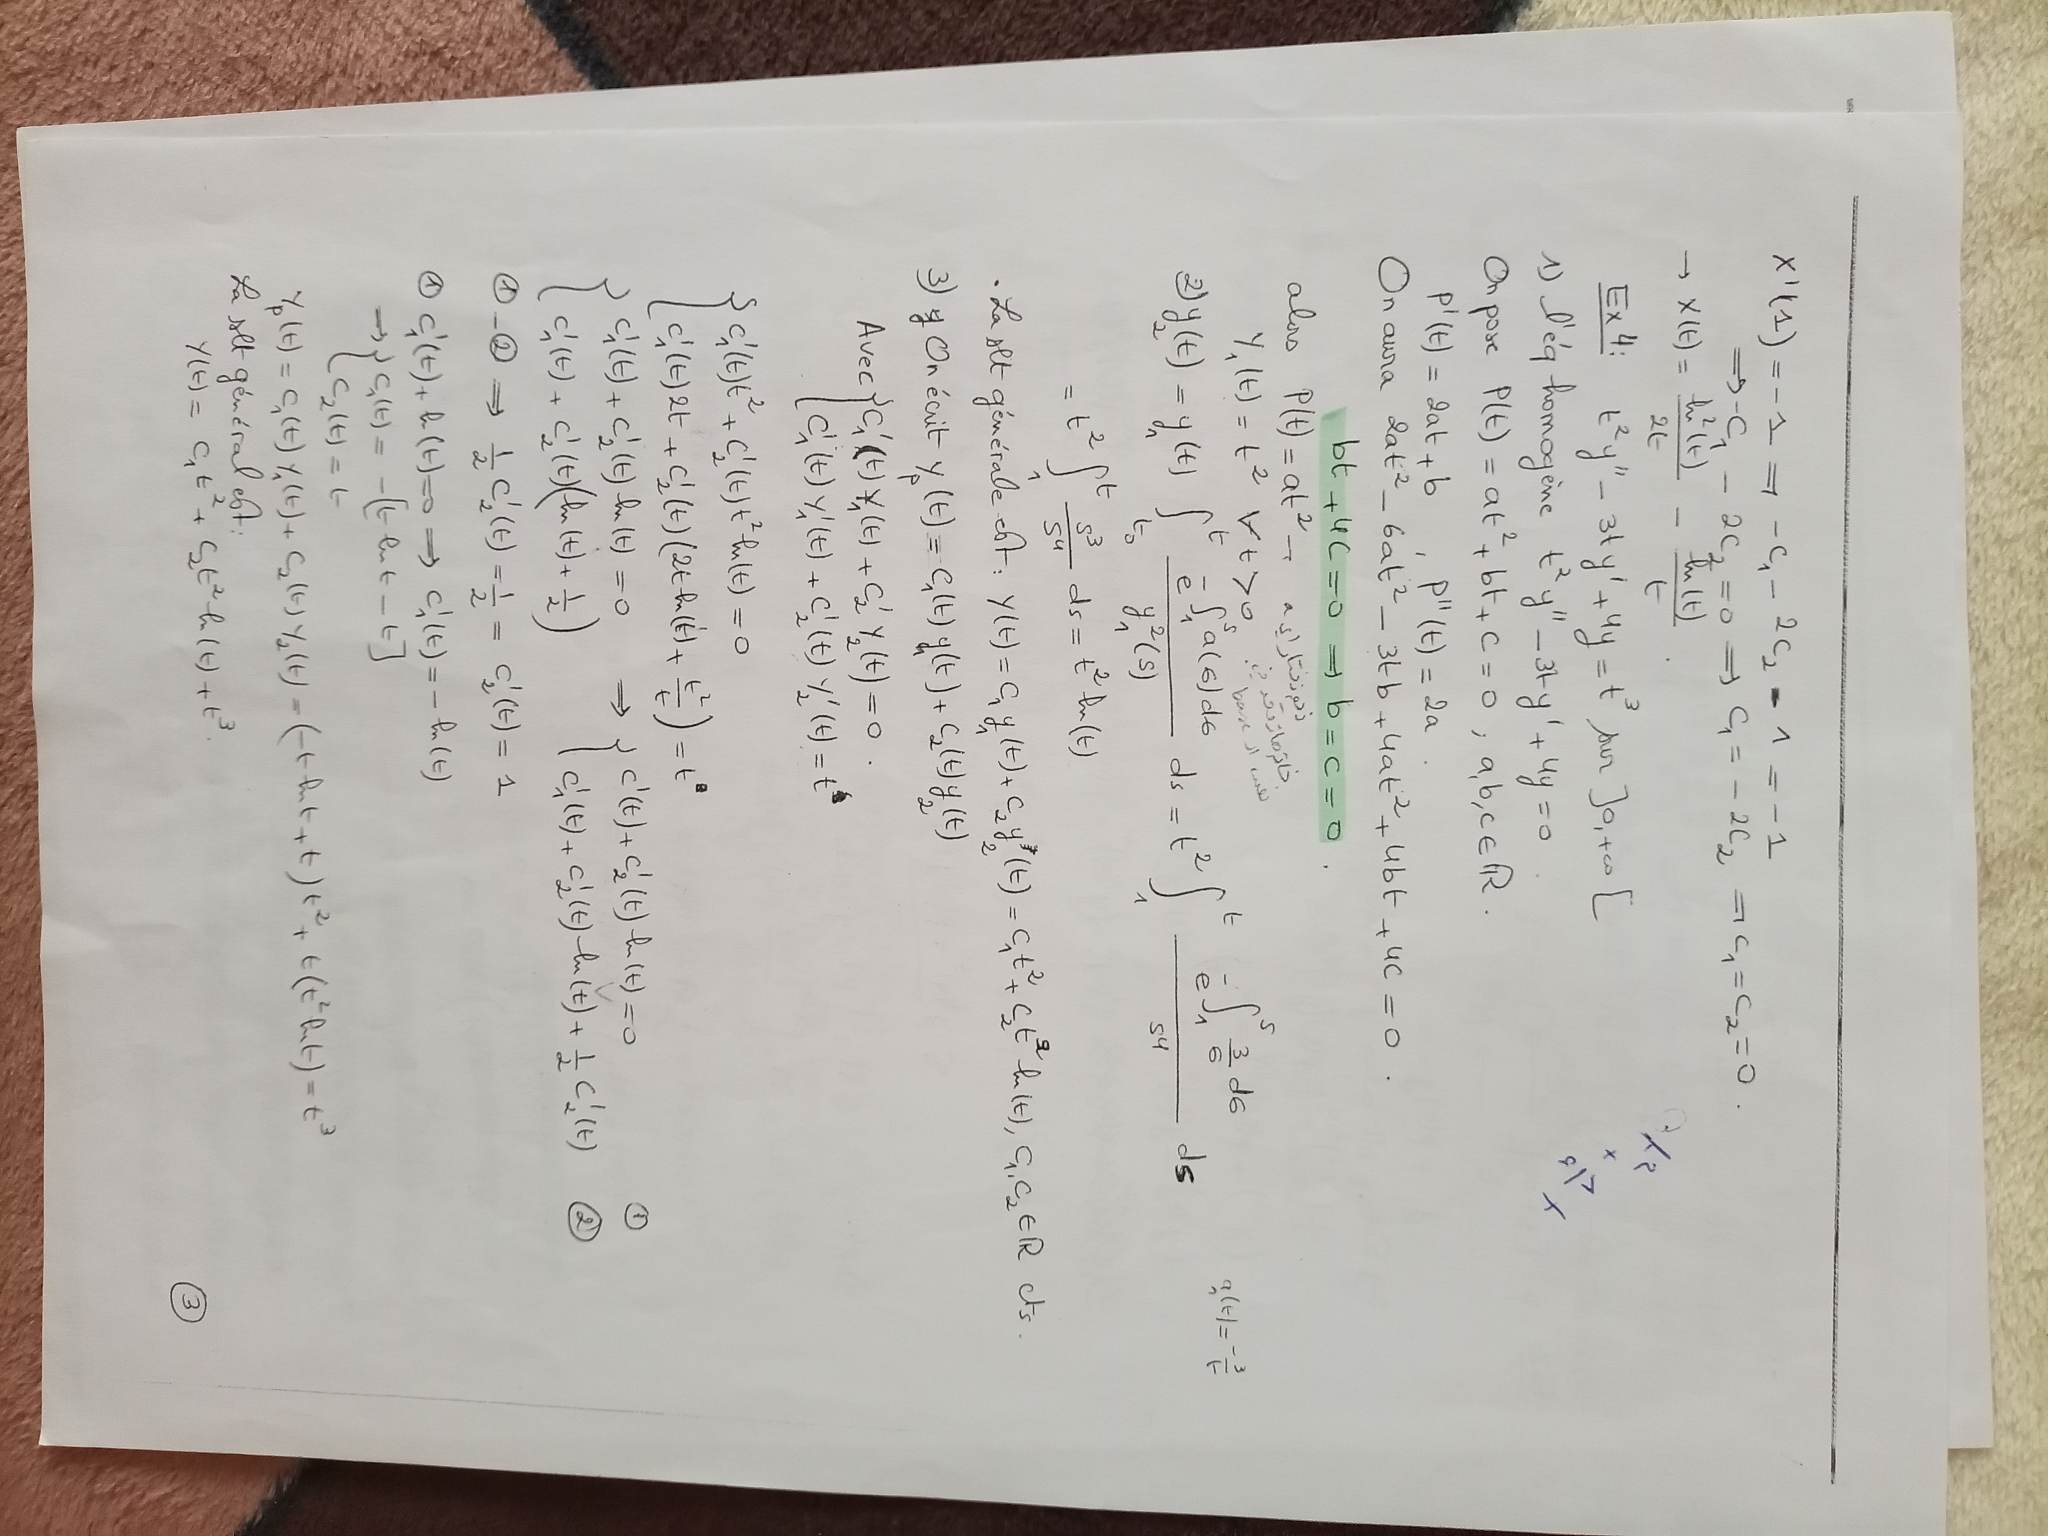 X'(1) = -1 ⇒ -C₁ - 2C₂ - 1 = -1
⇒ -C₁ - 2C₂ = 0 ⇒ C₁ = -2C₂ ⇒ C₁ = C₂ = 0 .
→ X(t) = ln²(t)/2t - ln(t)/t .
Ex 4: t²y'' - 3ty' + 4y = t³ sur ]0,+∞[
1) l'éq homogène t²y'' - 3ty' + 4y = 0 .
On pose P(t) = at² + bt + c = 0 , a,b,c ∈ ℝ .
P'(t) = 2at + b , P''(t) = 2a .
On aura 2at² - 6at² - 3tb + 4at² + 4bt + 4c = 0 .
bt + 4c = 0 ⇒ b = c = 0 .
alors P(t) = at² →
Y₁(t) = t² ∀ t > 0
base
2) y₂(t) = y₁(t) ∫_{t₀}^{t} e^{-∫₁^s a(6)d6} / y₁²(s) ds = t² ∫₁^t e^{-∫₁^s 3/6 d6} / s⁴ ds
a₁(t) = -3/t
= t² ∫₁^t s³/s⁴ ds = t² ln(t)
. La slt générale est : Y(t) = C₁y₁(t) + C₂y₂(t) = C₁t² + C₂t² ln(t), C₁,C₂ ∈ ℝ cts.
3) On écrit Y_p(t) = C₁(t)y₁(t) + C₂(t)y₂(t)
Avec { C₁'(t) Y₁(t) + C₂' Y₂(t) = 0 .
C₁'(t) Y₁'(t) + C₂'(t) Y₂'(t) = t
{ C₁'(t)t² + C₂'(t)t² ln(t) = 0
C₁'(t) 2t + C₂'(t)(2t ln(t) + t²/t) = t
{ C₁'(t) + C₂'(t) ln(t) = 0 ⇒ { C'(t) + C₂'(t) ln(t) = 0 ①
C₁'(t) + C₂'(t)(ln(t) + 1/2) C₁'(t) + C₂'(t) ln(t) + 1/2 C₂'(t) ②
① - ② ⇒ 1/2 C₂'(t) = 1/2 = C₂'(t) = 1
① C₁'(t) + ln(t) = 0 ⇒ C₁'(t) = - ln(t)
⇒ { C₁(t) = -[t ln t - t]
C₂(t) = t
Y_p(t) = C₁(t) Y₁(t) + C₂(t) Y₂(t) = (-t ln t + t) t² + t(t² ln t) = t³
La slt général est :
Y(t) = C₁t² + C₂t² ln(t) + t³.
③